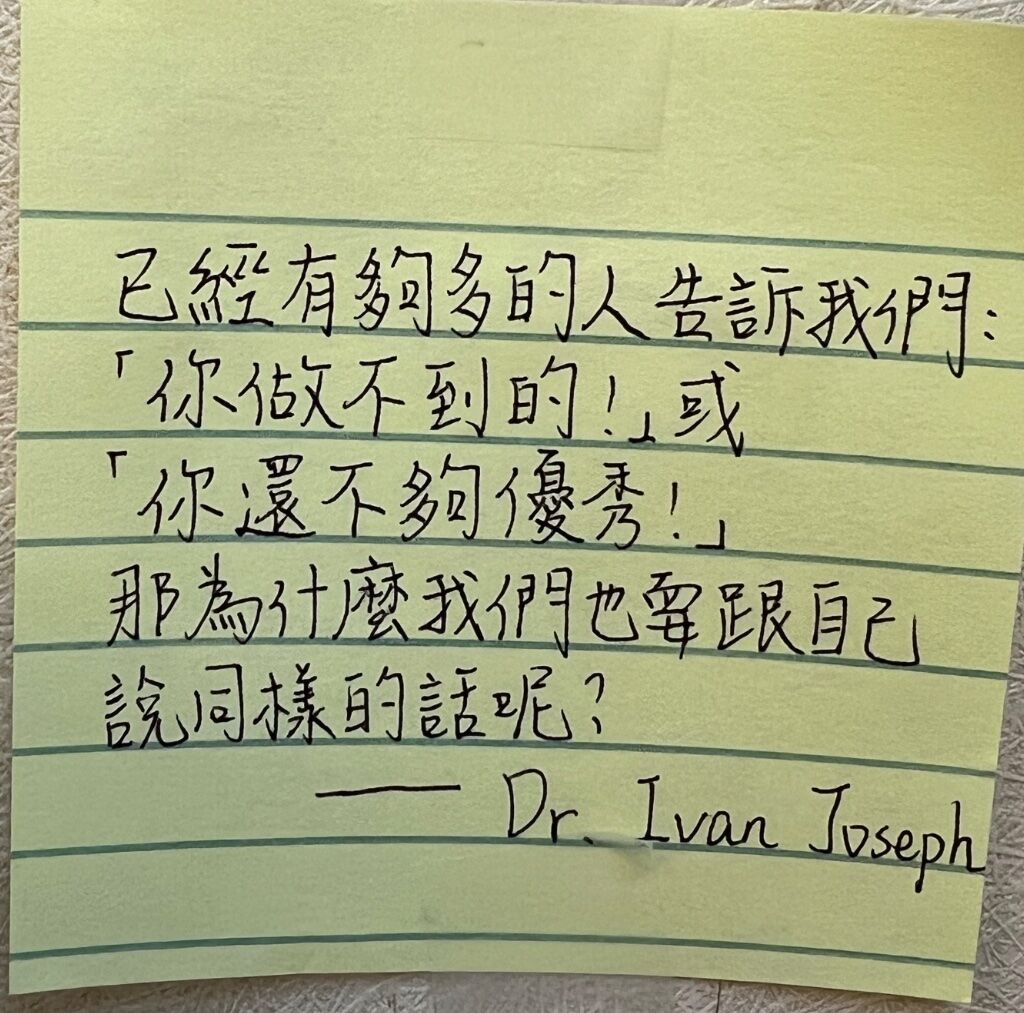 已經有夠多的人告訴我們:
「你做不到的!」或
「你還不夠優秀!」
那為什麼我們也要跟自己
說同樣的話呢?
—— Dr. Ivan Joseph